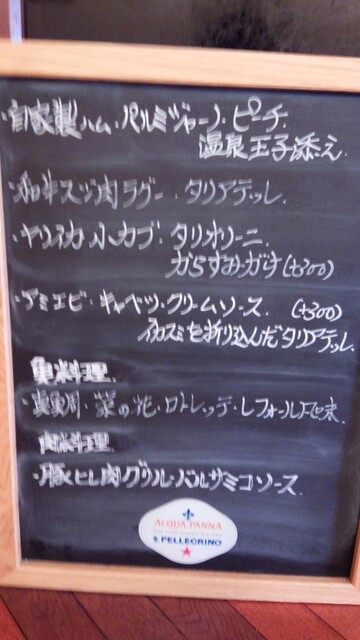 ・自家製ハム・パルミジャーノ・ピーチ
温泉玉子添え
・和牛スジ肉ラグー タリアテッレ
・ヤリイカ・小カブ・タリオリーニ
からすみがけ(+300)
・アミエビ・キャベツ・クリームソース (+300)
イカスミを折り込んだタリアテッレ
魚料理
・真鯛・菜の花・ロトレッテ・レフォール風味
肉料理
・豚ヒレ肉グリル・バルサミコソース
ACQUA PANNA
S.PELLEGRINO